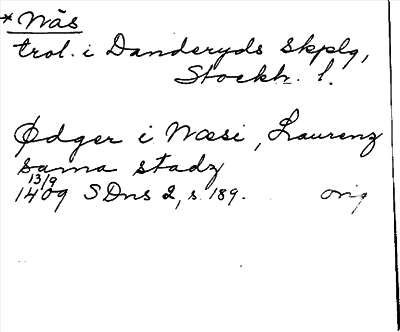 *Näs
trol. i Danderyds skplg,
Stockh. l.
Ødger i Næsi, Laurenz
sama stadz
13/9
1409 SDns 2, s. 189. orig